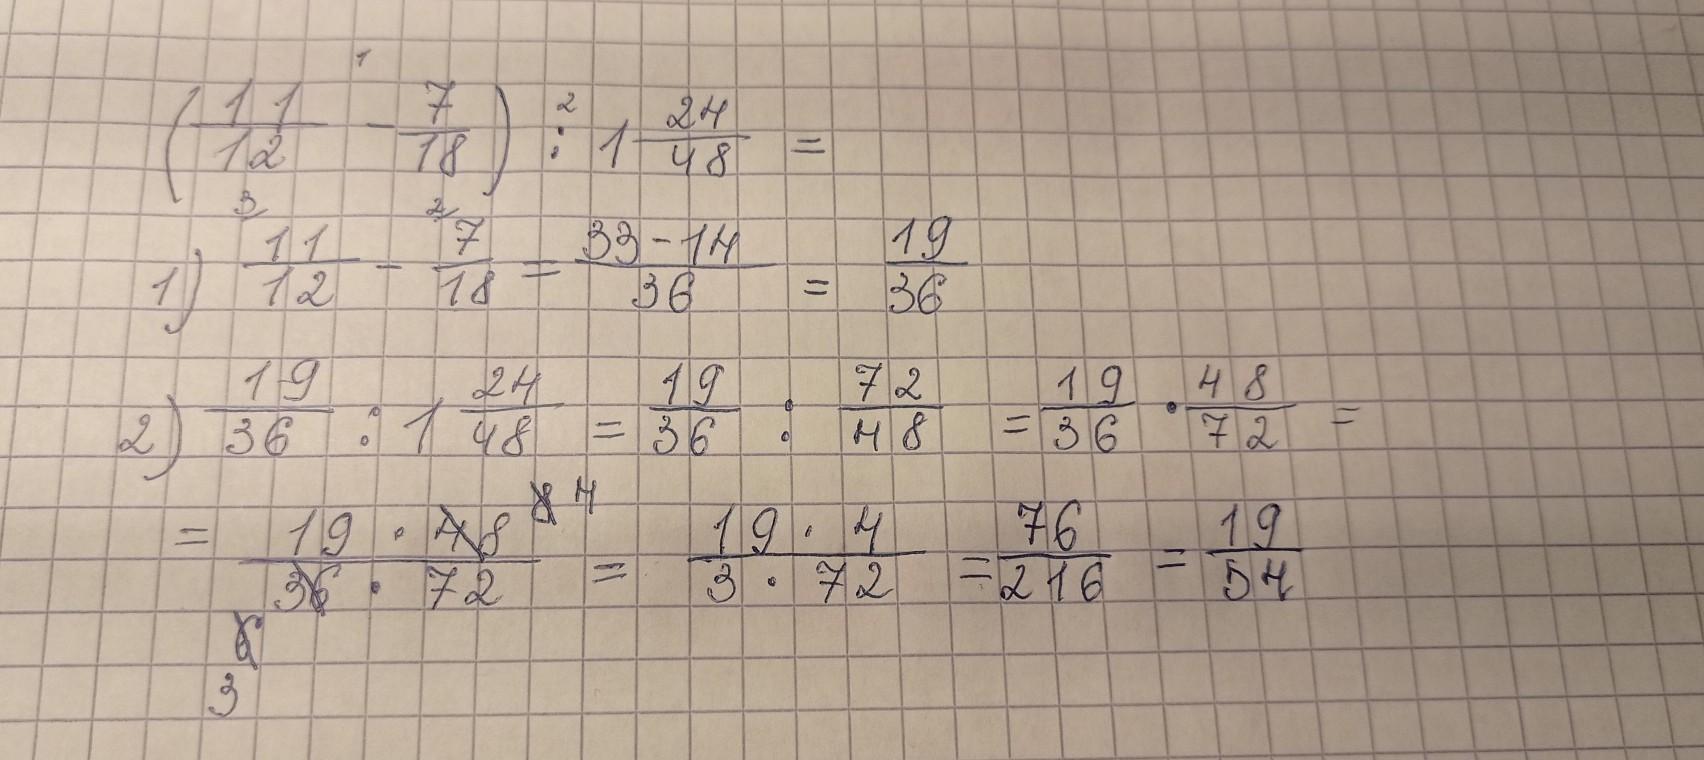 1 2
(11/12 - 7/18) : 1 24/48 =
3 2
1) 11/12 - 7/18 = 33-14/36 = 19/36
2) 19/36 : 1 24/48 = 19/36 : 72/48 = 19/36 · 48/72 =
= 19 · 48/36 · 72 = 19 · 4/3 · 72 = 76/216 = 19/54
8 4
6
3